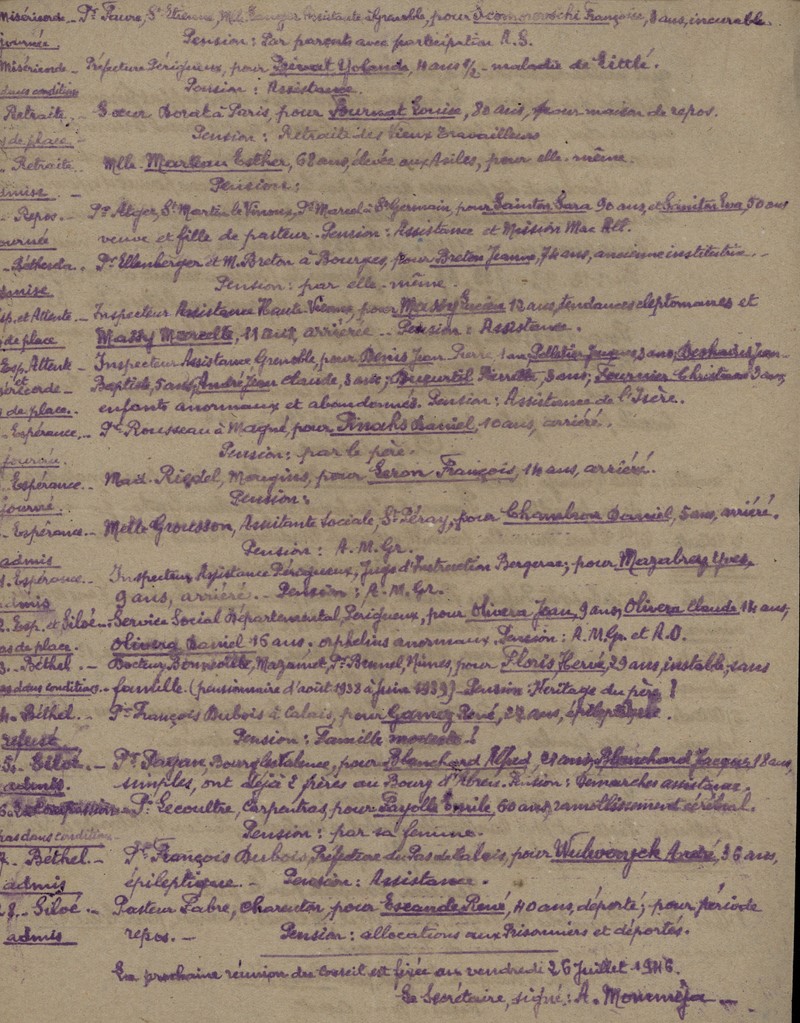 Miséricorde _ Pr Faure, St Etienne, Mlle Assistante à Grenoble, pour Françoise, 8 ans, incurable.
journée Pension: Par parents avec participation A.S.
Miséricorde _ Préfecture Périgueux, pour Yolande, 14 ans 1/2 _ maladie de Little.
dans condition Pension: Assistance.
Retraite _ Soeur Dorat à Paris, pour Fournat Louise, 80 ans, pour maison de repos.
de place _ Pension: Retraite des Vieux Travailleurs
" Retraite _ Mlle Marteau Esther, 68 ans, élevée aux Asiles, pour elle-même.
admise _ Pension:
- Repos _ Pr Atger, St Martin le Vinoux, Pr Marcel à St Germain, pour Sainton Sara 90 ans, et Sainton Eva, 50 ans
journée veuve et fille de pasteur. Pension: Assistance et Mission Mac All.
" Béthesda _ Pr Ellenberger et M. Breton à Bourges, pour Breton Jeanne, 74 ans, ancienne institutrice _
admise Pension: par elle-même.
Esp. et Attente _ Inspecteur Assistance Haute-Vienne, pour Massy Lucien 12 ans, tendances cleptomanes et
de place Massy Marcelle, 11 ans, arriérée _ Pension: Assistance.
Esp. Attente _ Inspecteur Assistance Grenoble, pour Denis Jean Pierre 1 an, Pelletier Jacques, 3 ans, Jean-
et Miséricorde _ Baptiste, 5 ans, André Jean Claude, 3 ans, Pierrette, 3 ans; Fournier Christiane 9 ans,
de place. enfants anormaux et abandonnés. Pension: Assistance de l'Isère.
" Espérance _ Pr Rousseau à Magné, pour Daniel, 10 ans, arriéré.
journée. Pension: par le père.
" Espérance _ Mad. Riedel, Mougins, pour Leron François, 14 ans, arriéré.
journée. Pension:
. Espérance _ Melle Grousson, Assistante Sociale, St Péray, pour Chambron Daniel, 5 ans, arriéré.
admis Pension: A.M.Gr.
1. Espérance _ Inspecteur Assistance Périgueux, Juge d'Instruction Bergerac; pour Mazabrey Yves,
admis 9 ans, arriéré. _ Pension: A.M.Gr.
2. Esp. et Siloé _ Service Social Départemental, Périgueux, pour Olivera Jean, 9 ans, Olivera Claude 14 ans,
pas de place. Olivera Daniel 16 ans. orphelins anormaux. Pension: A.M.Gr. et A.O.
3. _ Béthel. _ Docteur Mazamet, Pr Brunel, Nîmes, pour Floris Hervé, 29 ans, instable, sans
pas dans conditions _ famille. (pensionnaire d'août 1938 à Juin 1939) _ Pension: Héritage du père?
4. Béthel. _ Pr François Dubois à Calais, pour Gamez René, 27 ans, épileptique.
refusé Pension: Famille modeste?
5. Siloé. _ Pr Payan, Bourg les Valence, pour Blanchard Alfred, 21 ans, Blanchard Jacques, 18 ans,
admis. simples, ont déjà 2 frères au Bourg d'Abren. Pension: Démarches assistance.
6. La Compassion _ Pr Lecoultre, Carpentras, pour Payolle Emile, 60 ans, ramollissement cérébral.
pas dans condition _ Pension: par sa femme.
7. Béthel. _ Pr François Dubois, Préfecture du Pas de Calais, pour André, 36 ans,
admis épileptique. _ Pension: Assistance.
28. Siloé. _ Pasteur Fabre, Charenton, pour Escande René, 40 ans, déporté; pour période
admis repos. _ Pension: allocations aux Prisonniers et déportés.
La prochaine réunion du Conseil est fixée au vendredi 26 Juillet 1946.
Le Secrétaire, signé: A. Monméja _